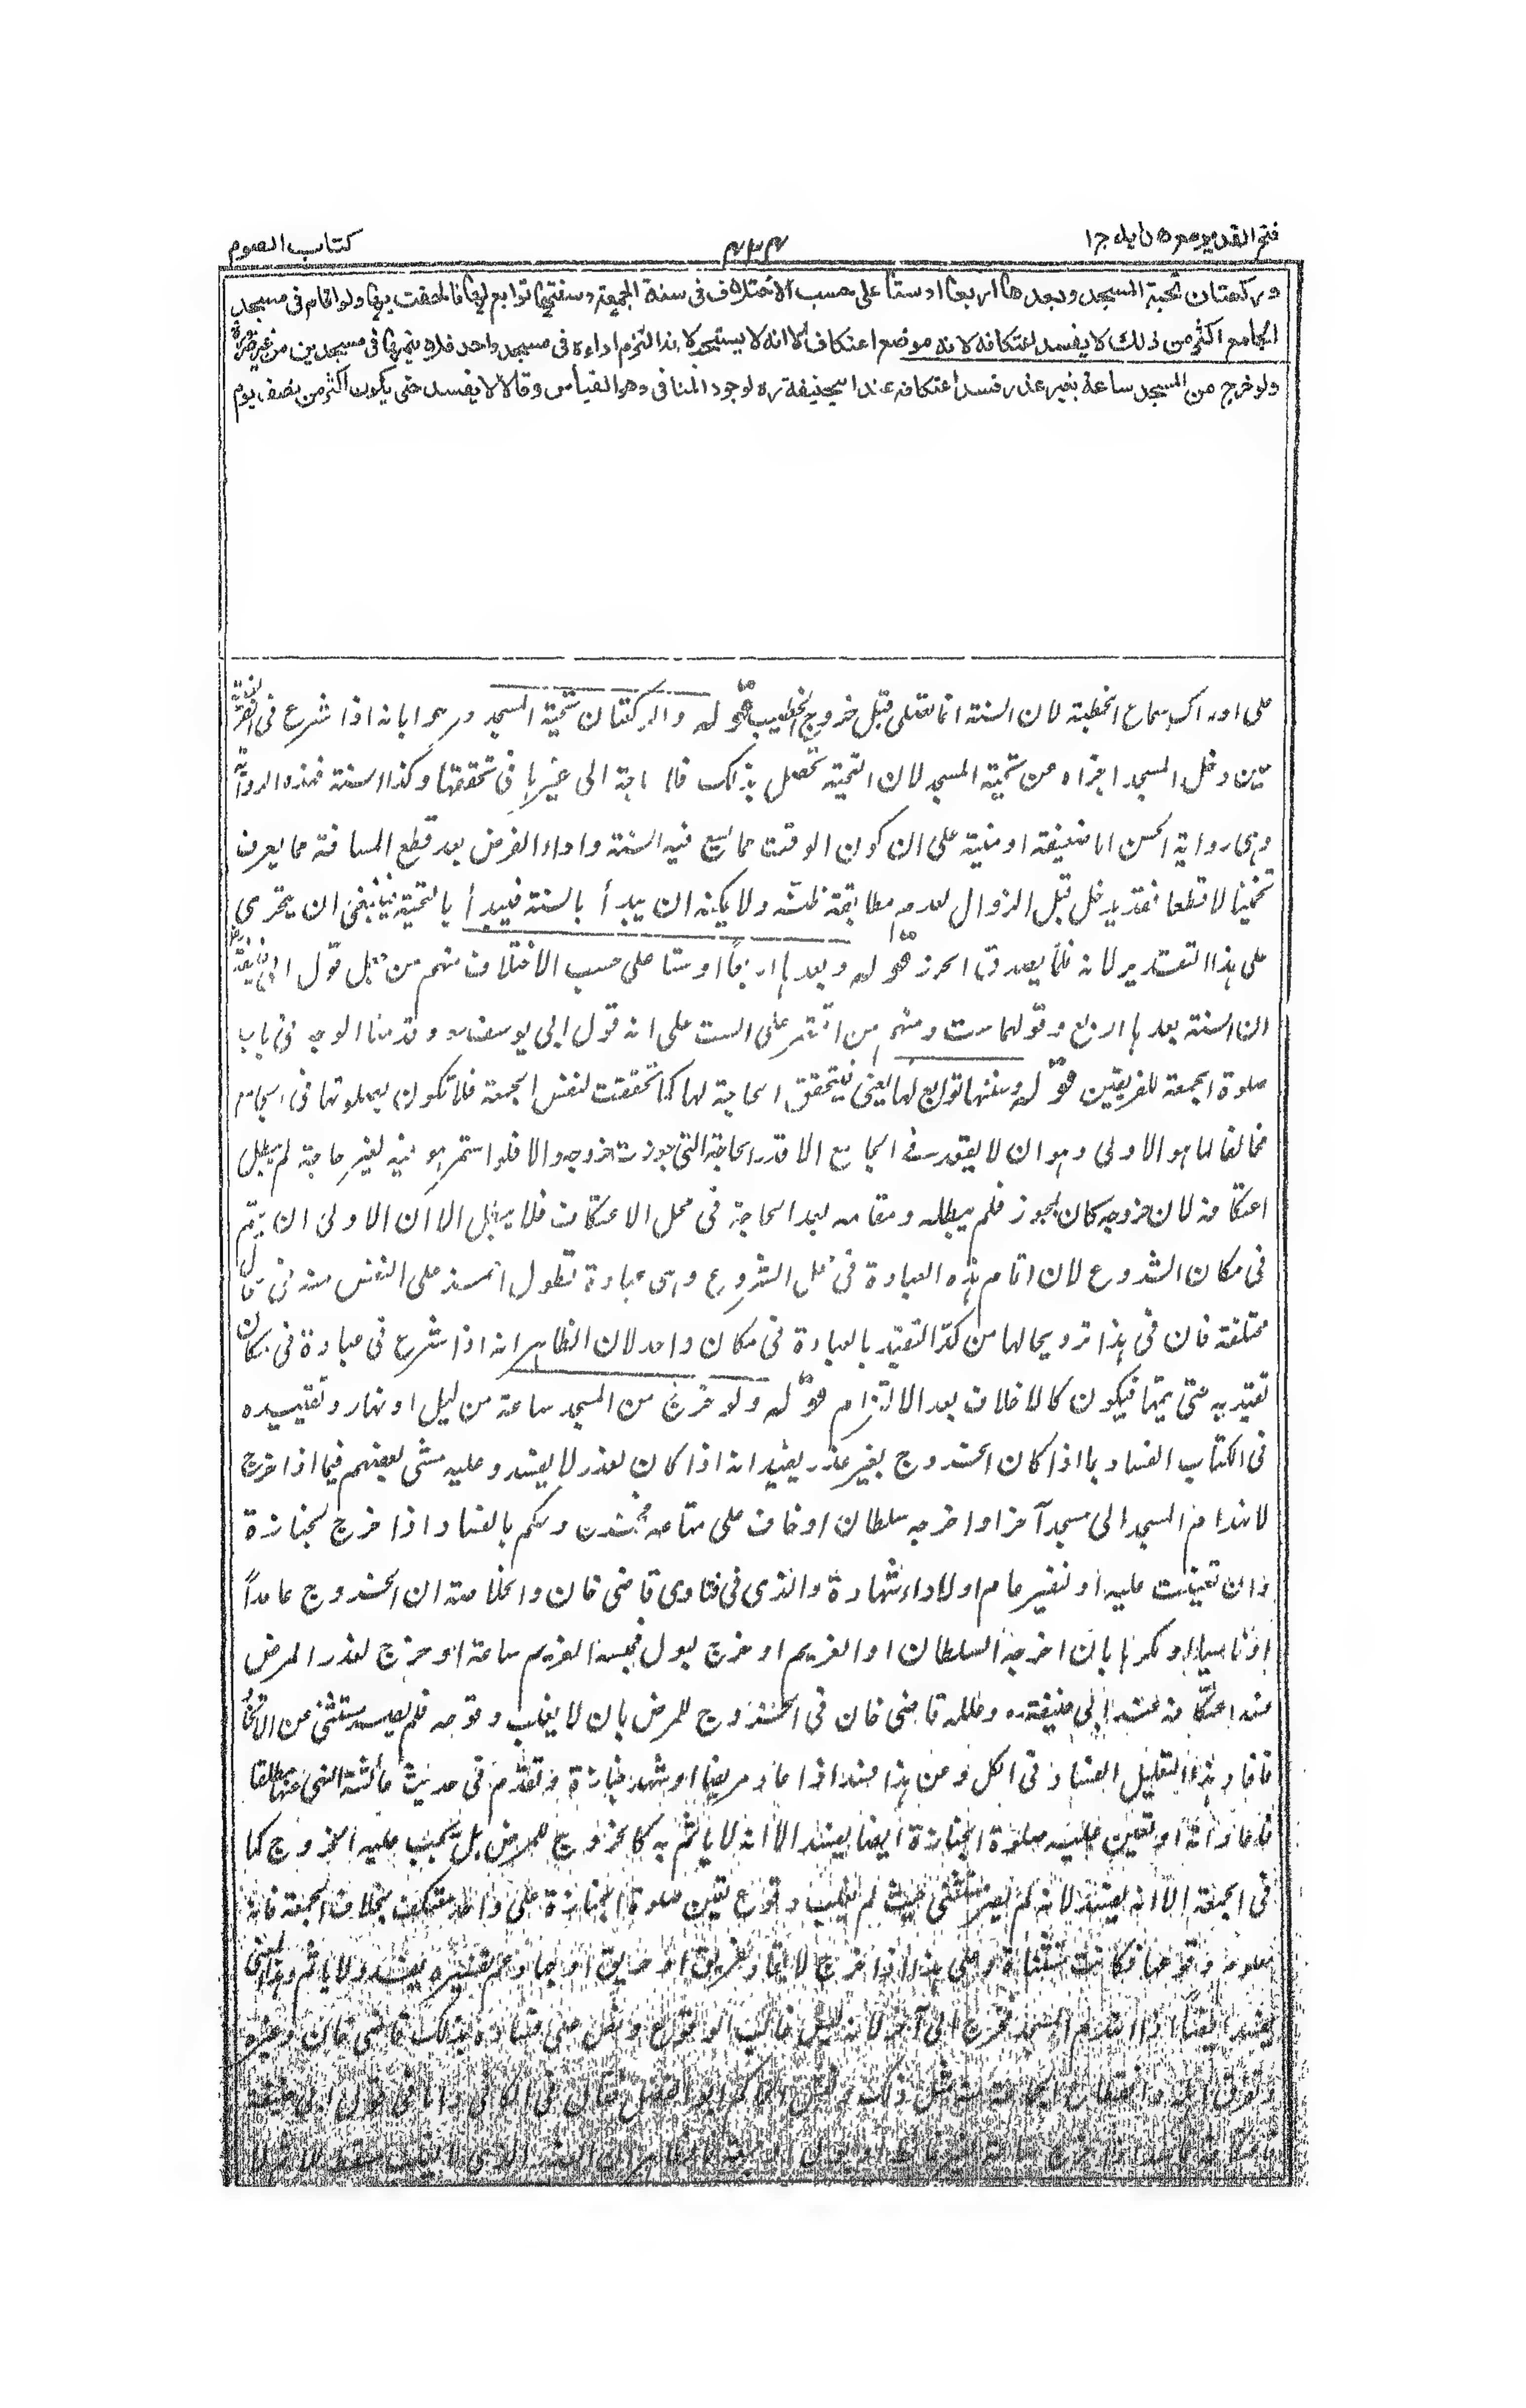 فتح القدیر مع هدایه ج۱
۴۳۴
کتاب الصوم
ورکعتان تحیة المسجد وبعدها اربعا اوستا علی حسب الاختلاف فی سنة الجمعة وسنتها توابع لها فالحقت بها ولو اقام فی مسجد
الجامع اکثر من ذلك لا یفسد اعتکافه لانه موضع اعتکاف الا انه لا یستحب لانه التزم اداءه فی مسجد واحد فلا یتمها فی مسجدین من غیر ضرورة
ولو خرج من المسجد ساعة بغیر عذر فسد اعتکافه عند ابیحنیفة ره لوجود المنافی وهو القیاس وقالا لا یفسد حتی یکون اکثر من نصف یوم
علی ادراک سماع الخطبة لان السنة انما تصلی قبل خروج الخطیب قوله والرکعتان تحیة المسجد صرحوا بانه اذا شرع فی الفریضة
حین دخل المسجد اجزاه عن تحیة المسجد لان التحیة تحصل بذلک فلا حاجة الی غیرها فی تحققها وکذا السنة فهذه الروایة
وهی روایة الحسن اما ضعیفة او مبنیة علی ان کون الوقت مما یسع فیه السنة واداء الفرض بعد قطع المسافة مما یعرف
تخمینا لا قطعا فقد یدخل قبل الزوال لعدم مطابقة ظنه ولا یمکنه ان یبدأ بالسنة فیبدأ بالتحیة فینبغی ان یتحری
علی هذا التقدیر لانه قلما یصدق الحرز قوله وبعدها اربعاً او ستا علی حسب الاختلاف منهم من جعل قول ابی حنیفة
ان السنة بعدها اربع وقولهما ست ومنهم من اقتصر علی الست علی انه قول ابی یوسف وقد منا الوجه فی باب
صلوة الجمعة للفریقین قوله وسنتها توابع لها یعنی فیتحقق الحاجة لها کما تحققت لنفس الجمعة فلا تکون بصلوتها فی الجامع
مخالفا لما هو الاولی وهو ان لا یقعد فی الجامع الا قدر الحاجة التی جوزت خروجه والا فلو استمر هو فیه لغیر حاجة لم یبطل
اعتکافه لان خروجه کان لمجوز فلم یبطله ومقامه بعد الحاجة فی محل الاعتکاف فلا یبطل الا ان الاولی ان یتم
فی مکان الشروع لان اتمام هذه العبادة فی محل الشروع وهی عبادة تطول احمز علی النفس منه فی محال
مختلفة فان فی هذا ترویحا لها من کد التقید بالعبادة فی مکان واحد لان الظاهر انه اذا شرع فی عبادة فی مکان
تقید به حتی یتمها فیکون کالاخلاف بعد الالتزام قوله ولو خرج من المسجد ساعة من لیل او نهار وتقییده
فی الکتاب الفساد بما اذا کان الخروج بغیر عذر یفید انه اذا کان لعذر لا یفسد وعلیه مشی بعضهم فیما اذا خرج
لانهدام المسجد الی مسجد آخر او اخرجه سلطان او خاف علی متاعه فخرج وحکم بالفساد اذا خرج لجنازة
وان تعینت علیه او لنفیر عام او لاداء شهادة والذی فی فتاوی قاضی خان والخلاصة ان الخروج عامداً
او ناسیا او مکرها بان اخرجه السلطان او الغریم او خرج لبول فحبسه الغریم ساعة او خرج لعذر المرض
فسد اعتکافه عند ابی حنیفة ره وعلله قاضی خان فی الخروج للمرض بان لا یغلب وقوعه فلم یصر مستثنی عن الایجاب
فافاد هذا التعلیل الفساد فی الکل وعن هذا فسد اذا عاد مریضا او شهد جنازة وتقدم فی حدیث عائشة النهی عنه مطلقا
فافاد انه لو تعین علیه صلوة الجنازة ایضا یفسد الا انه لا یأثم به کالخروج للمرض بل یجب علیه الخروج کما
فی الجمعة الا انه یفسد لانه لم یصر مستثنی حیث لم یغلب وقوع تعین صلوة الجنازة علی واحد معتکف بخلاف الجمعة فانه
معلوم وقوعها فکانت مستثناة وعلی هذا اذا خرج لانقاذ غریق او حریق او جهاد عم نفیره یفسد ولا یأثم وهذا المعنی
یفید ایضا اذا انهدم المسجد فخرج الی آخر لانه لیس غالب الوقوع ونص علی فساده بذلک قاضی خان وغیره
وتفرق اهله وانقطاع الجماعة منه مثل ذلک ونص الحاکم ابو الفضل فقال فی الکافی واما فی قول ابی حنیفة